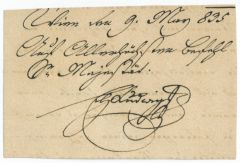 Wien den 9. May 835
Auf Allerhöchsten Befehl
Sr Majestät.
Erz Ludwig